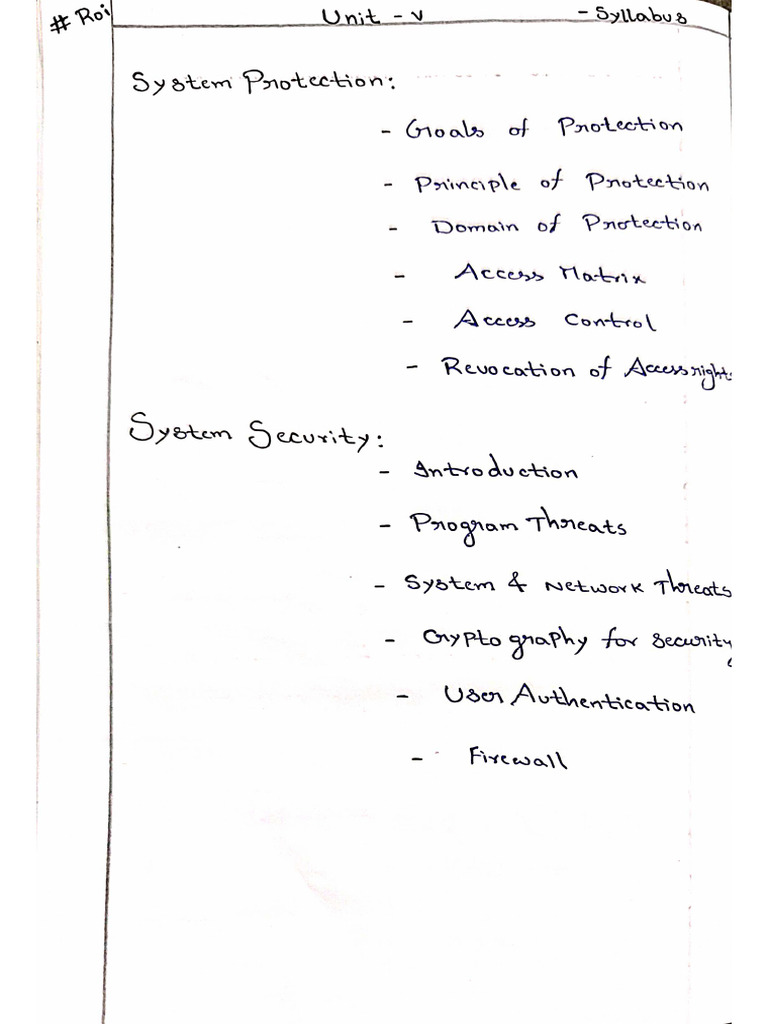 # Roi Unit - V - Syllabus
System Protection:
- Goals of Protection
- Principle of Protection
- Domain of Protection
- Access Matrix
- Access Control
- Revocation of Access rights
System Security:
- Introduction
- Program Threats
- System & Network Threats
- Cryptography for security
- User Authentication
- Firewall